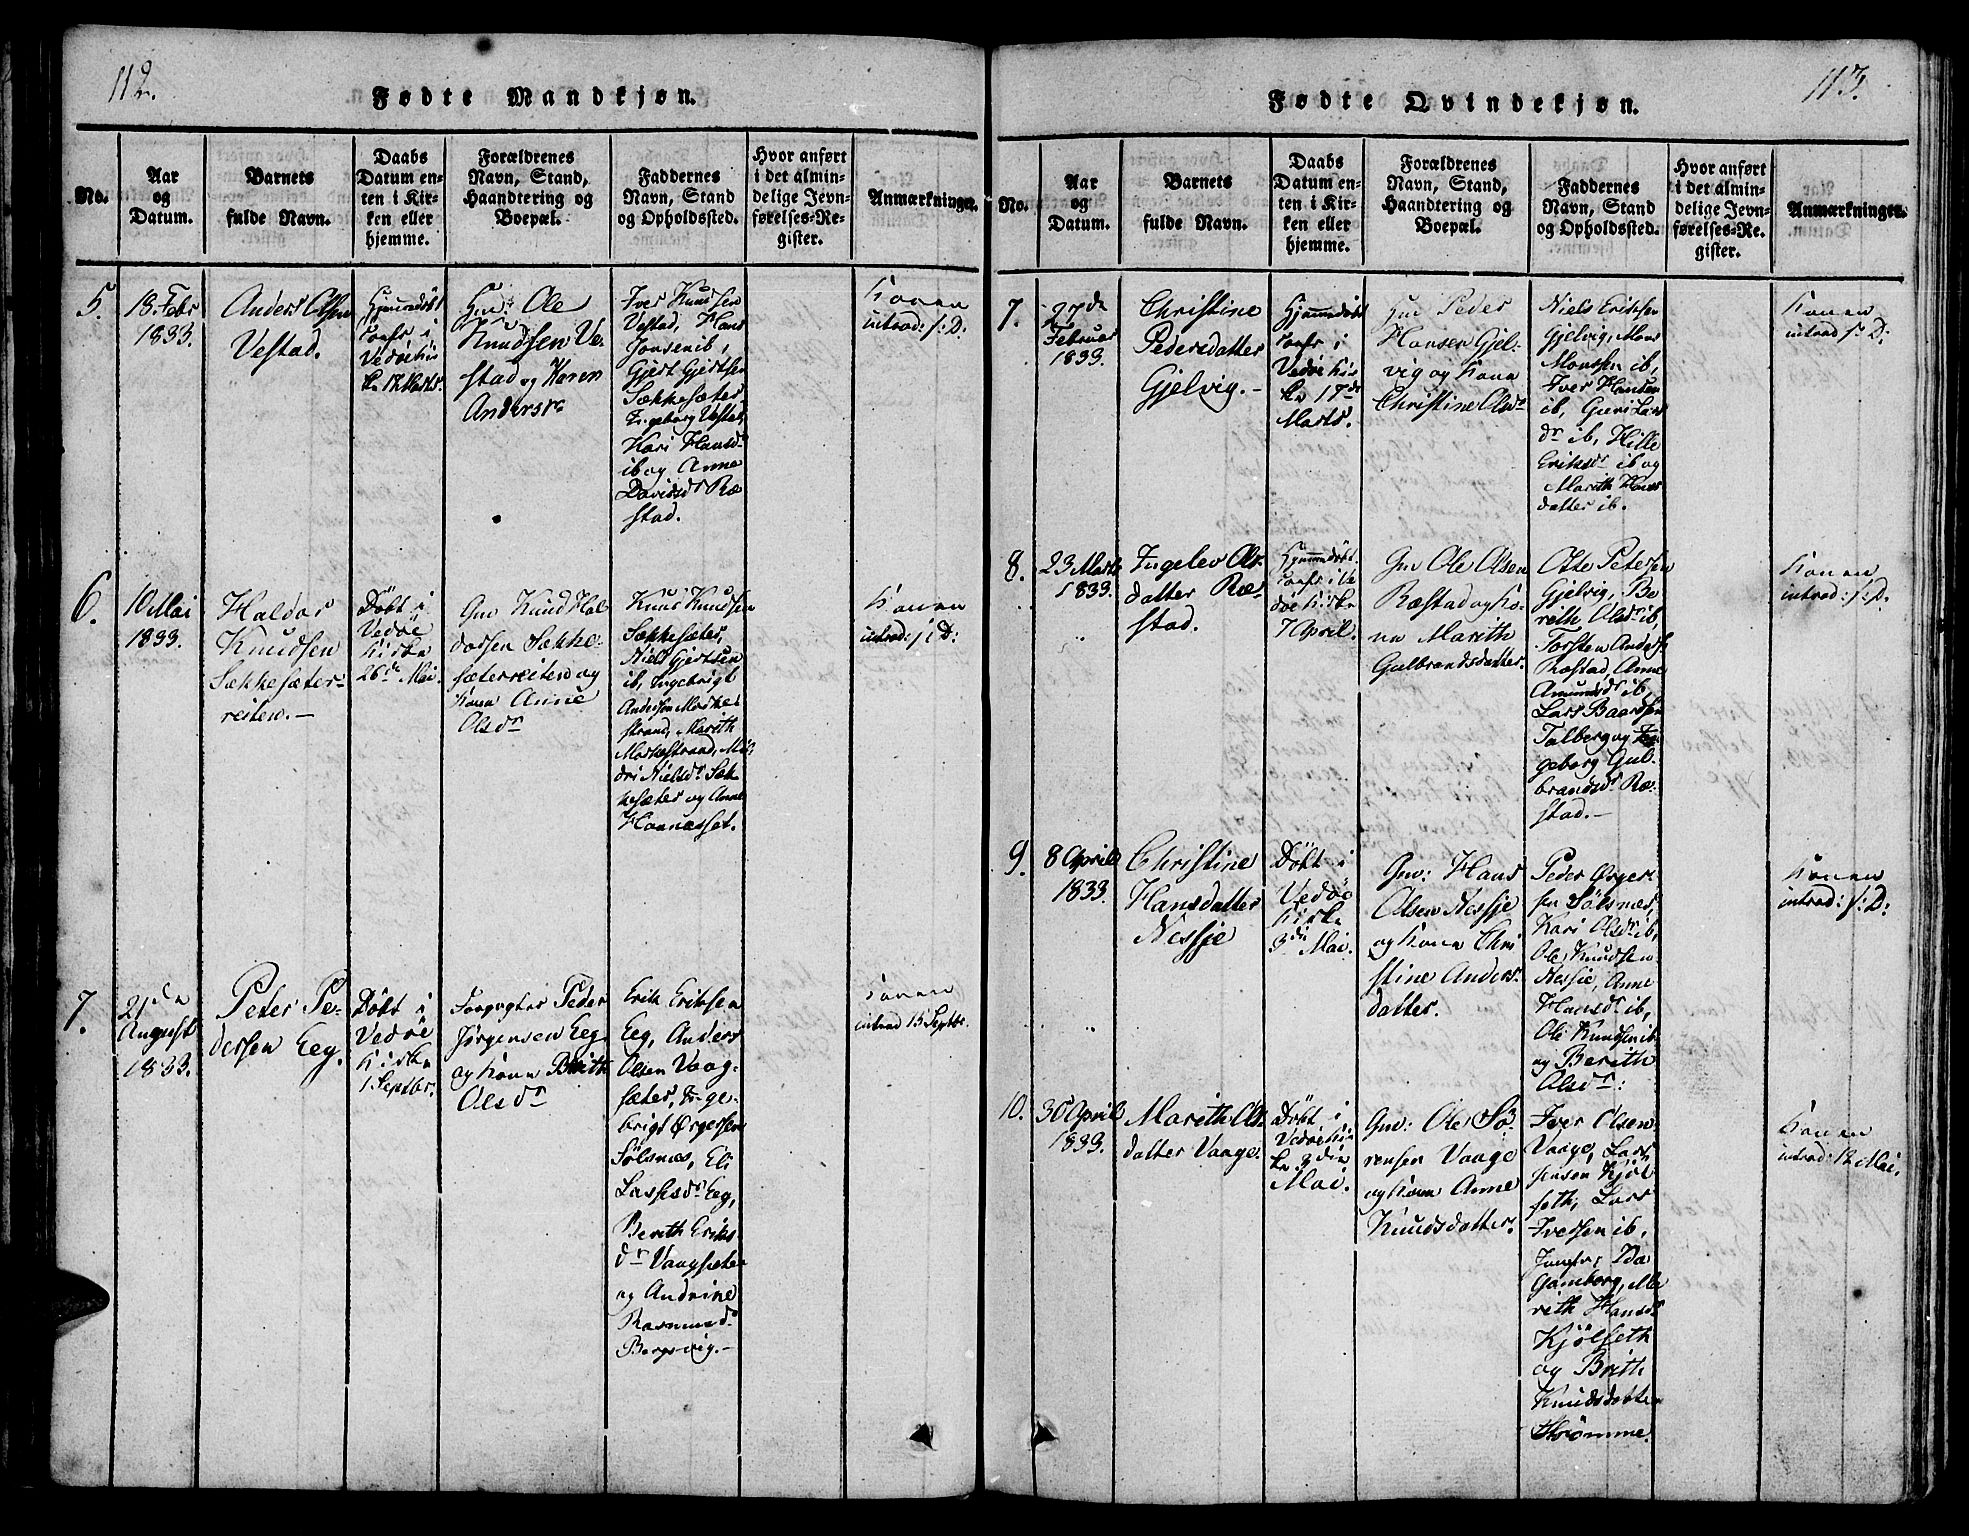 112.
Fødte Mandkjøn.
No.
Aar
og
Datum.
Barnets
fulde Navn.
Daabs
Datum en-
ten i Kir-
ken eller
hjemme.
Forældrenes
Navn, Stand,
Haandtering og
Boepæl.
Faddernes
Navn, Stand
og Opholdssted.
Hvor anført
i det almin-
delige Jevn-
førelses-Re-
gister.
Anmærkninger.
5.
18. Febr
1833.
Anders Olsen
Vestad.
Hjemmedöbt
confr i
Vedöe Kir
ke 17 Marts.
Gm: Ole
Knudsen Ve-
stad og Karen
Andersdr
Iver Knudsen
Vestad, Hans
Jonsen ib,
Gjert Gjertsen
Sækkesæter,
Ingeborg Vestad,
Kari Hansdr
ib og Anne
Davidsdr Ræ
stad.
Konen
introd: s: D:
6.
10 Mai
1833.
Haldor
Knudsen
Sækkesæter-
reiten.-
Döbt i
Vedöe
Kirke
26de Mai
Gm Knud Hal
dorsen Sække-
sæterreiten og
Kone Anne
Olsdr
Knud Knudsen
Sækkesæter,
Niels Gjertsen
ib, Ingebrigt
Andersen Morke
strand, Marith
Morkestrand, Mil-
dri Nielsdr Sæk
kesæter og Anne
Konen
introd: s: D:
7.
21de
August
1833.
Peter Pe-
dersen Eeg.
Döbt i
Vedöe
Kirke
1 Septbr.
Forpagter Peder
Jörgensen Eeg
og Kone Brith
Olsdr
Erik Eriksen
Eeg, Anders
Olsen Vaag-
sæter, Inge-
brigt Ørgersen
Sölsnæs, Eli
Lassesdr Eeg,
Berith Eriks
dr Vaagsæter
og Andrine
Rasmusdr
Bergsvig.-
Konen
introd 15 Septbr.
113.
Fødte Qvindekjøn.
No.
Aar
og
Datum.
Barnets
fulde Navn.
Daabs
Datum en-
ten i Kir-
ken eller
hjemme.
Forældrenes
Navn, Stand,
Haandtering og
Boepæl.
Faddernes
Navn, Stand
og Opholdssted.
Hvor anført
i det almin-
delige Jevn-
førelses-Re-
gister.
Anmærkninger.
7.
27de
Februar
1833.
Christine
Pedersdatter
Gjelvig.-
Hjemmedöbt
confr i
Vedöe Kir
ke 17de
Marts.
Gm Peder
Hansen Gjel-
vig og Kone
Christine Olsdr
Niels Eriksen
Gjelvig, Mons
Monssen ib,
Iver Hansen
ib, Guri Lars
dr ib, Hille
Eriksdr ib og
Marith Hans
datter ib.
Konen
introd: s: D:
8.
23 Marts
1833.
Ingelev Ols-
datter Ræ-
stad.
Hjemmedöbt
confr i Ve
döe Kirke
7 April.
Gm Ole Olsen
Ræstad og Ko-
ne Marith
Gulbrandsdatter.
Otte Petersen
Gjelvig, Be
reth Olsdr ib,
Torsten Anders.
Ræstad, Anne
Amundsdr ib,
Lars Baardsen
Talberg og In
geborg Gul-
brandsdr Ræ-
stad.-
Konen
introd: s: D:
9.
8 April
1833.
Christine
Hansdatter
Nessje
Döbt i
Vedöe
Kirke
3die Mai.
Gm: Hans
Olsen Nessje
og Kone Chri
stine Anders-
datter.
Peder Ørger-
sen Sölsnæs,
Kari Olsdr ib,
Ole Knudsen
Nessje, Anne
Hansdr ib,
Ole Knudsen ib
og Berith
Olsdr:
Konen
introd: s: D:
10.
30 April
1833.
Marith Ols-
datter Vaage.
Döbt i
Vedöe Kir
ke 3die
Mai.
Gm: Ole Sö-
rensen Vaage
og Kone Anne
Knudsdatter.
Iver Olsen
Vaage, Lars
Jensen Kjöl
seth, Lars
Iversen ib,
Jomfru Ida
Gamborg, Ma
rith Hansdr
Kjölseth
og Brith
Knudsdatter
Strömme.
Konen
introd: 12 Mai.